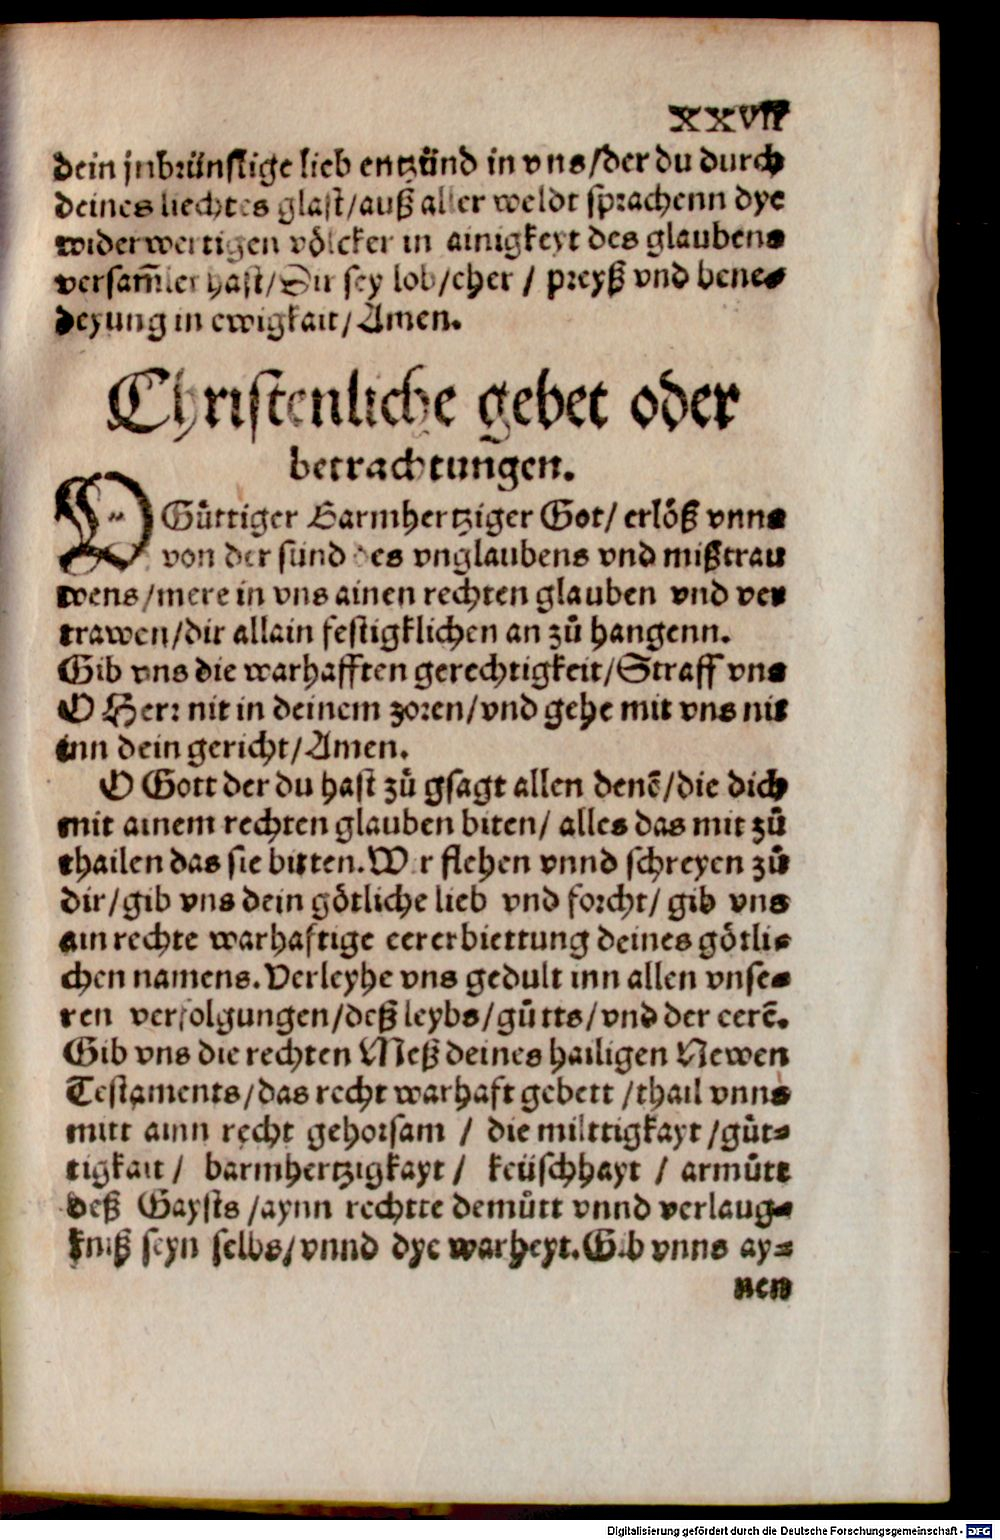 XXVII
dein jnbrünstige lieb entzünd in vns/der du durch
deines liechtes glast/auß aller weldt sprachenn dye
widerwertigen völcker in ainigkeyt des glaubens
versam̃let hast/Dir sey lob/eher / preyß vnd bene⸗
deyung in ewigkait/Amen.
Christenliche gebet oder
betrachtungen.
O Gůttiger Barmhertziger Got/ erlöß vnns
von der sünd des vnglaubens vnd mißtrau
wens/mere in vns ainen rechten glauben vnd ver
trawen/dir allain festigklichen an zů hangenn.
Gib vns die warhafften gerechtigkeit/Straff vns
O Herr nit in deinem zoren/vnd gehe mit vns nit
inn dein gericht/Amen.
O Gott der du hast zů gsagt allen denē/die dich
mit ainem rechten glauben biten/ alles das mit zů
thailen das sie bitten. Wir flehen vnnd schreyen zů
dir/gib vns dein götliche lieb vnd forcht/ gib vns
ain rechte warhaftige eererbiettung deines götli⸗
chen namens. Verleyhe vns gedult inn allen vnse⸗
ren verfolgungen/deß leybs/gůtts/vnd der eerē.
Gib vns die rechten Meß deines hailigen Newen
Testaments/das recht warhaft gebett /thail vnns
mitt ainn recht gehorsam / die milttigkayt /gůt⸗
tigkait / barmhertzigkayt / keüschhayt / armůtt
deß Gaysts /aynn rechtte demůtt vnnd verlaug⸗
kniß seyn selbs/vnnd dye warheyt. Gib vnns ay⸗
nen
Digitalisierung gefördert durch die Deutsche Forschungsgemeinschaft - DFG